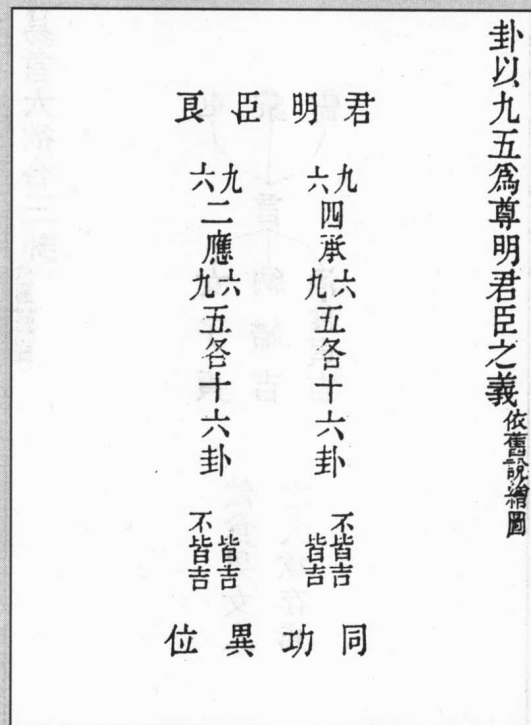 卦以九五爲尊明君臣之義依舊說繪圖
君明臣良
九六四承六九五各十六卦不皆吉皆吉
九六二應六九五各十六卦皆吉不皆吉
同功異位